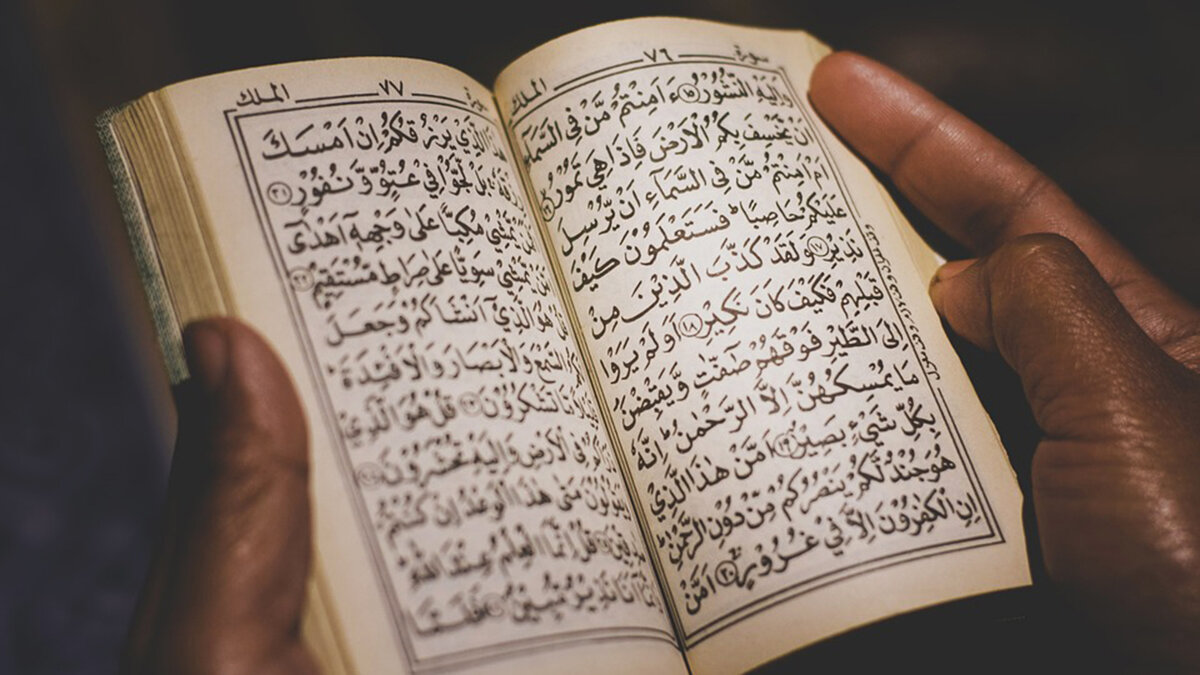 سورة ٧٦ الملك
وَاِلَيْهِ النُّشُوْرُ ١٥ ءَاَمِنْتُمْ مَّنْ فِى السَّمَآءِ
اَنْ يَّخْسِفَ بِكُمُ الْاَرْضَ فَاِذَا هِيَ تَمُوْرُ
اَمْ اَمِنْتُمْ مَّنْ فِى السَّمَآءِ اَنْ يُّرْسِلَ
عَلَيْكُمْ حَاصِبًا ؕ فَسَتَعْلَمُوْنَ كَيْفَ
نَذِيْرِ ١٧ وَلَقَدْ كَذَّبَ الَّذِيْنَ مِنْ
قَبْلِهِمْ فَكَيْفَ كَانَ نَكِيْرِ ١٨ اَوَلَمْ يَرَوْا
اِلَى الطَّيْرِ فَوْقَهُمْ صٰٓفّٰتٍ وَّيَقْبِضْنَ
مَا يُمْسِكُهُنَّ اِلَّا الرَّحْمٰنُ ؕ اِنَّهٗ
بِكُلِّ شَيْءٍ بَصِيْرٌ ١٩ اَمَّنْ هٰذَا الَّذِيْ
هُوَ جُنْدٌ لَّكُمْ يَنْصُرُكُمْ مِّنْ دُوْنِ الرَّحْمٰنِ
اِنِ الْكٰفِرُوْنَ اِلَّا فِيْ غُرُوْرٍ ٢٠ اَمَّنْ
٧٧ الملك
الَّذِيْ يَرْزُقُكُمْ اِنْ اَمْسَكَ
بَلْ لَّجُّوْا فِيْ عُتُوٍّ وَّنُفُوْرٍ ٢١
يَّمْشِيْ مُكِبًّا عَلٰى وَجْهِهٖٓ اَهْدٰٓى
يَّمْشِيْ سَوِيًّا عَلٰى صِرَاطٍ مُّسْتَقِيْمٍ ٢٢
هُوَ الَّذِيْٓ اَنْشَاَكُمْ وَجَعَلَ
السَّمْعَ وَالْاَبْصَارَ وَالْاَفْئِدَةَ ؕ
مَّا تَشْكُرُوْنَ ٢٣ قُلْ هُوَ الَّذِيْ
فِى الْاَرْضِ وَاِلَيْهِ تُحْشَرُوْنَ ٢٤
وَيَقُوْلُوْنَ مَتٰى هٰذَا الْوَعْدُ اِنْ كُنْتُمْ
قُلْ اِنَّمَا الْعِلْمُ عِنْدَ اللّٰهِ
اَنَا نَذِيْرٌ مُّبِيْنٌ فَلَمَّا